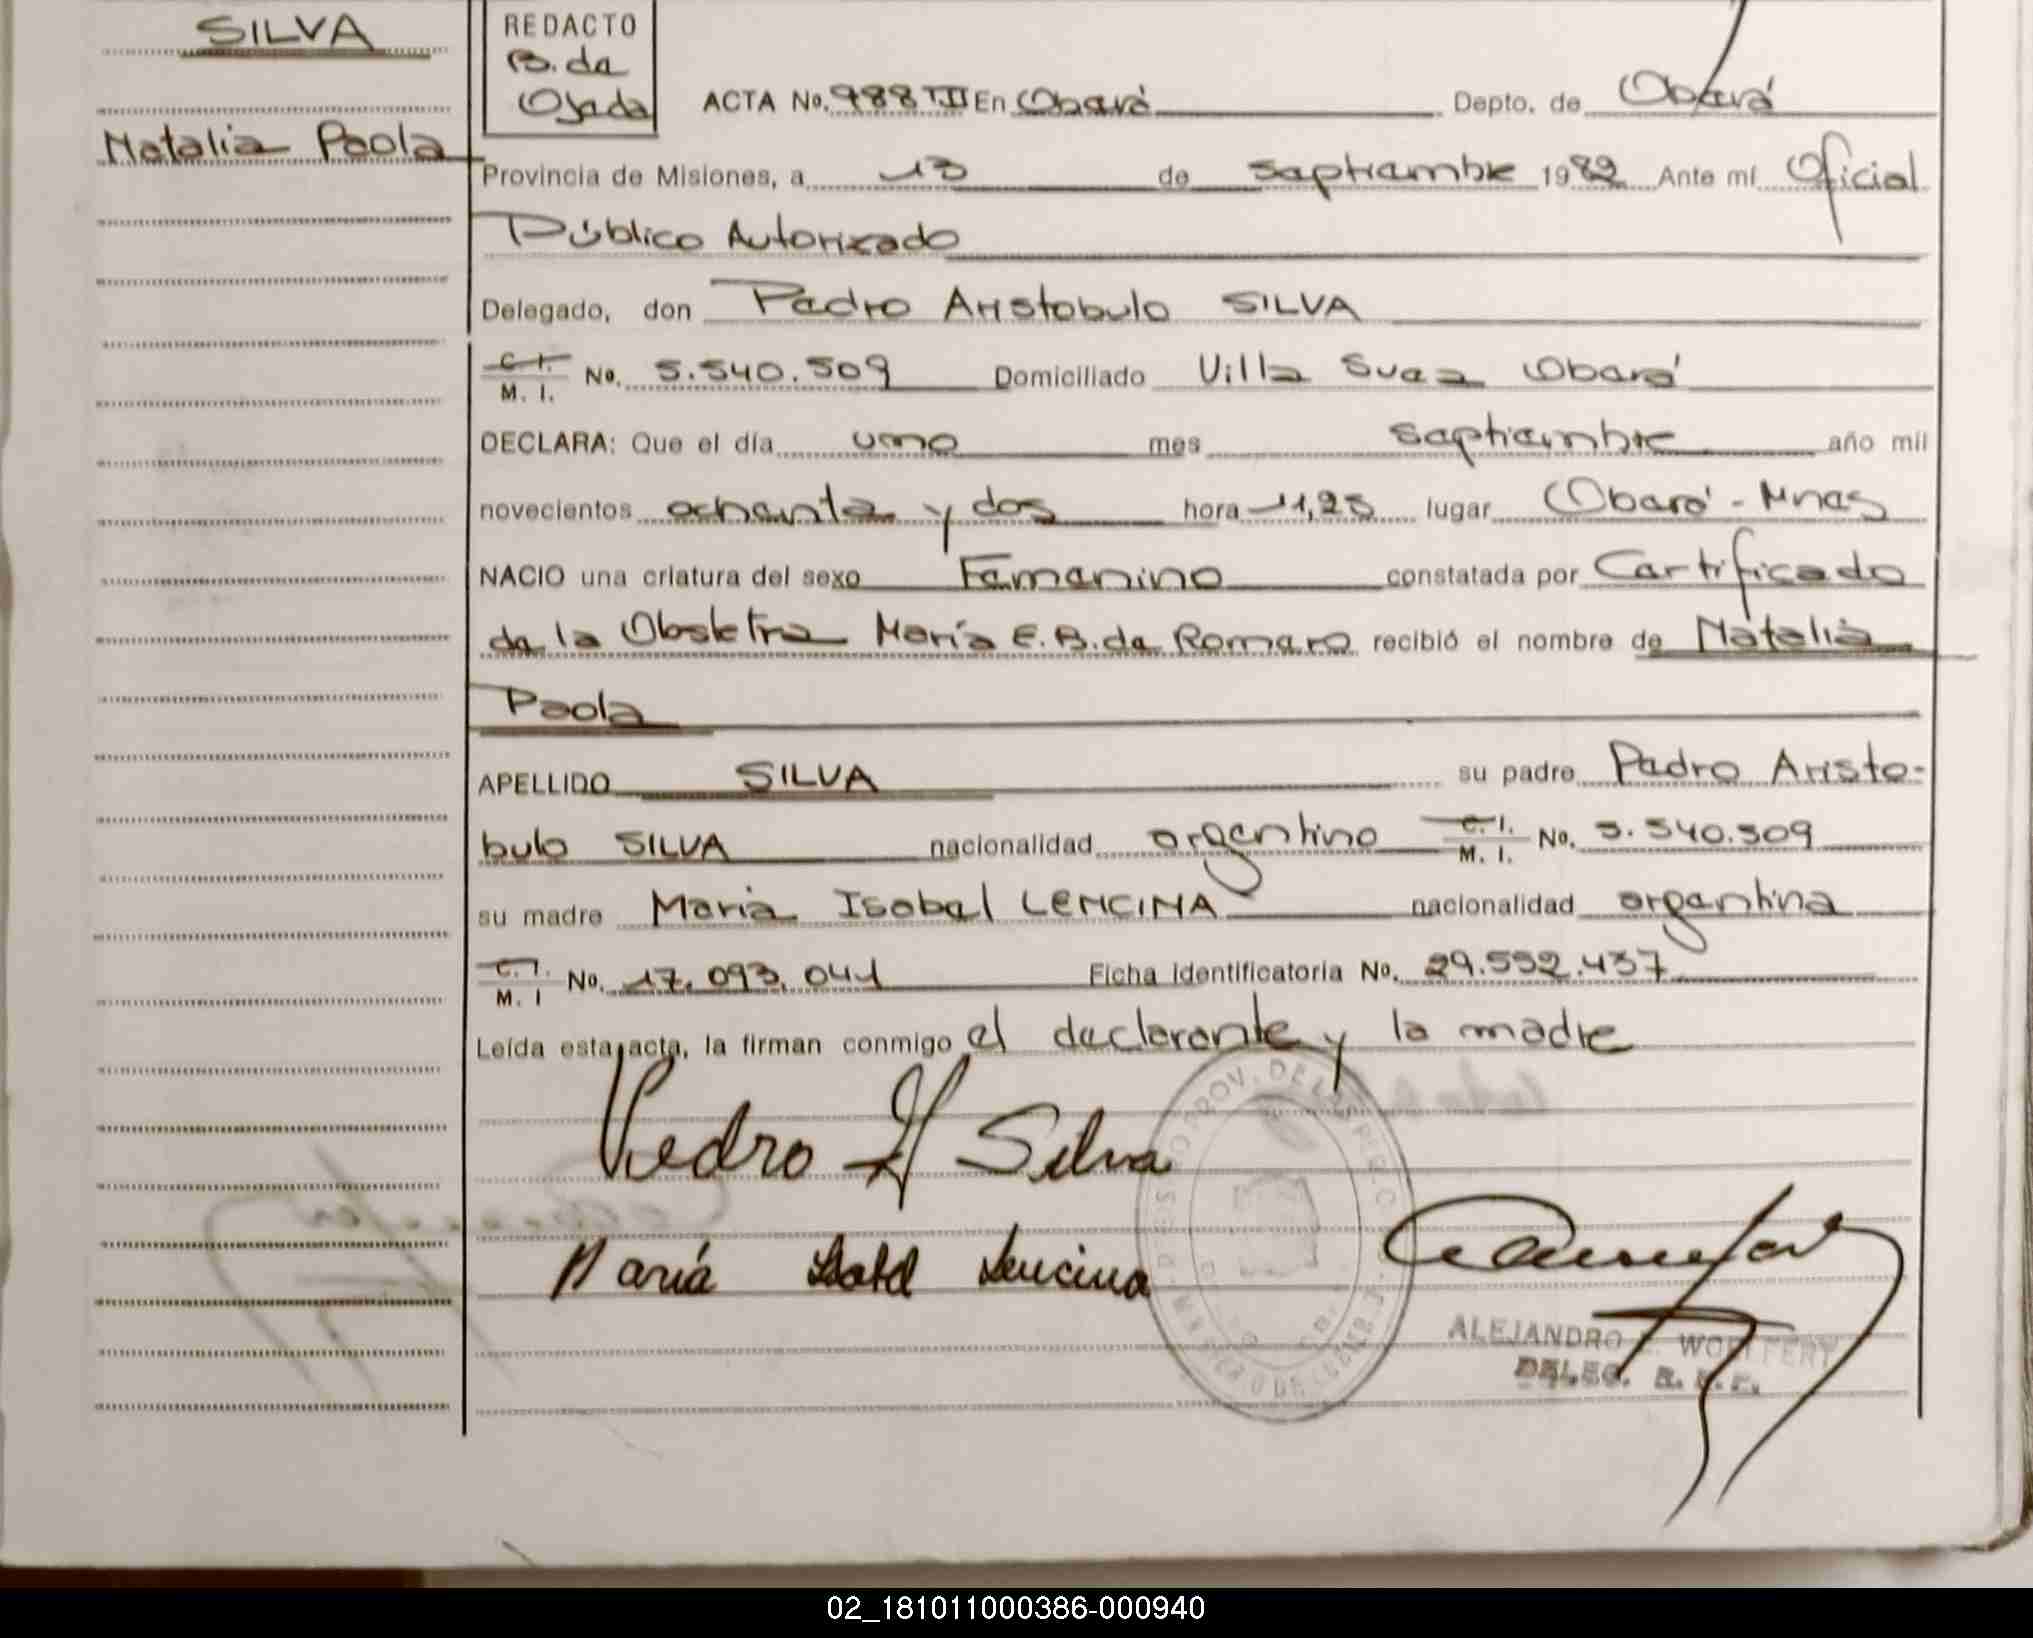 SILVA
Natalia Paola
REDACTO
B. de
Ojeda
ACTA No. 988 T.II En Oberá Depto. de Oberá
Provincia de Misiones, a 13 de septiembre 1982 Ante mí Oficial
Público Autorizado
Delegado, don Pedro Aristobulo SILVA
C. I. M. I. No. 5.540.509 Domiciliado Villa Suea Oberá
DECLARA: Que el día uno mes septiembre año mil
novecientos ochenta y dos hora 11,25 lugar Oberá - Mnes
NACIO una criatura del sexo Femenino constatada por Certificado
de la Obstetra María E. B. de Romero recibió el nombre de Natalia
Paola
APELLIDO SILVA su padre Pedro Aristo-
bulo SILVA nacionalidad argentino C. I. M. I. No. 5.540.509
su madre Maria Isabel LENCINA nacionalidad argentina
C. I. M. I No. 17.093.041 Ficha identificatoria No. 29.592.437
Leída esta acta, la firman conmigo el declarante y la madre
Pedro A Silva
María Isabel Lencina
ALEJANDRO
DELEG. R. P.
02_181011000386-000940